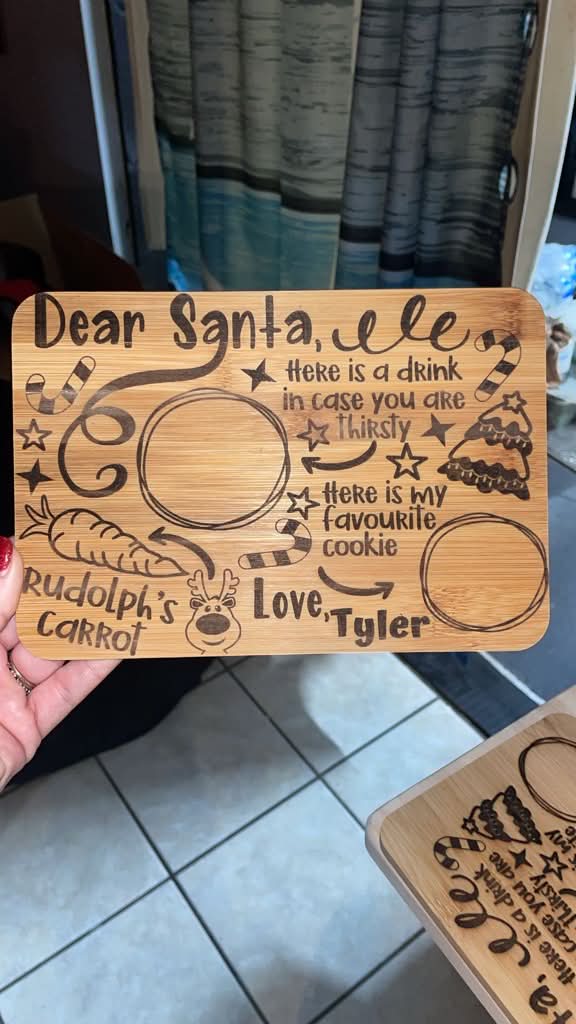 Dear Santa,
Here is a drink
in case you are
thirsty
Here is my
favourite
cookie
Rudolph's
Carrot
Love,
Tyler
ta,
Here is a drink
case you are
thirsty
my